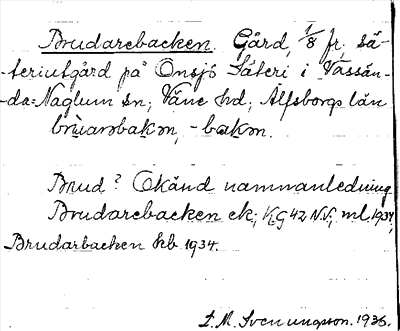 Brudarebacken. Gård, 1/8 fr, sä-
teriutgård på Onsjö Säteri i Vassän-
da-Naglum sn; Väne hd, Älfsborgs län
brùarəbakən, -bakən.
Brud? Okänd namnanledning
Brudarebacken ek; K.G 42 N.V; ml. 1934;
Brudarbacken kb 1934.
L. M. Svenungsson. 1936.